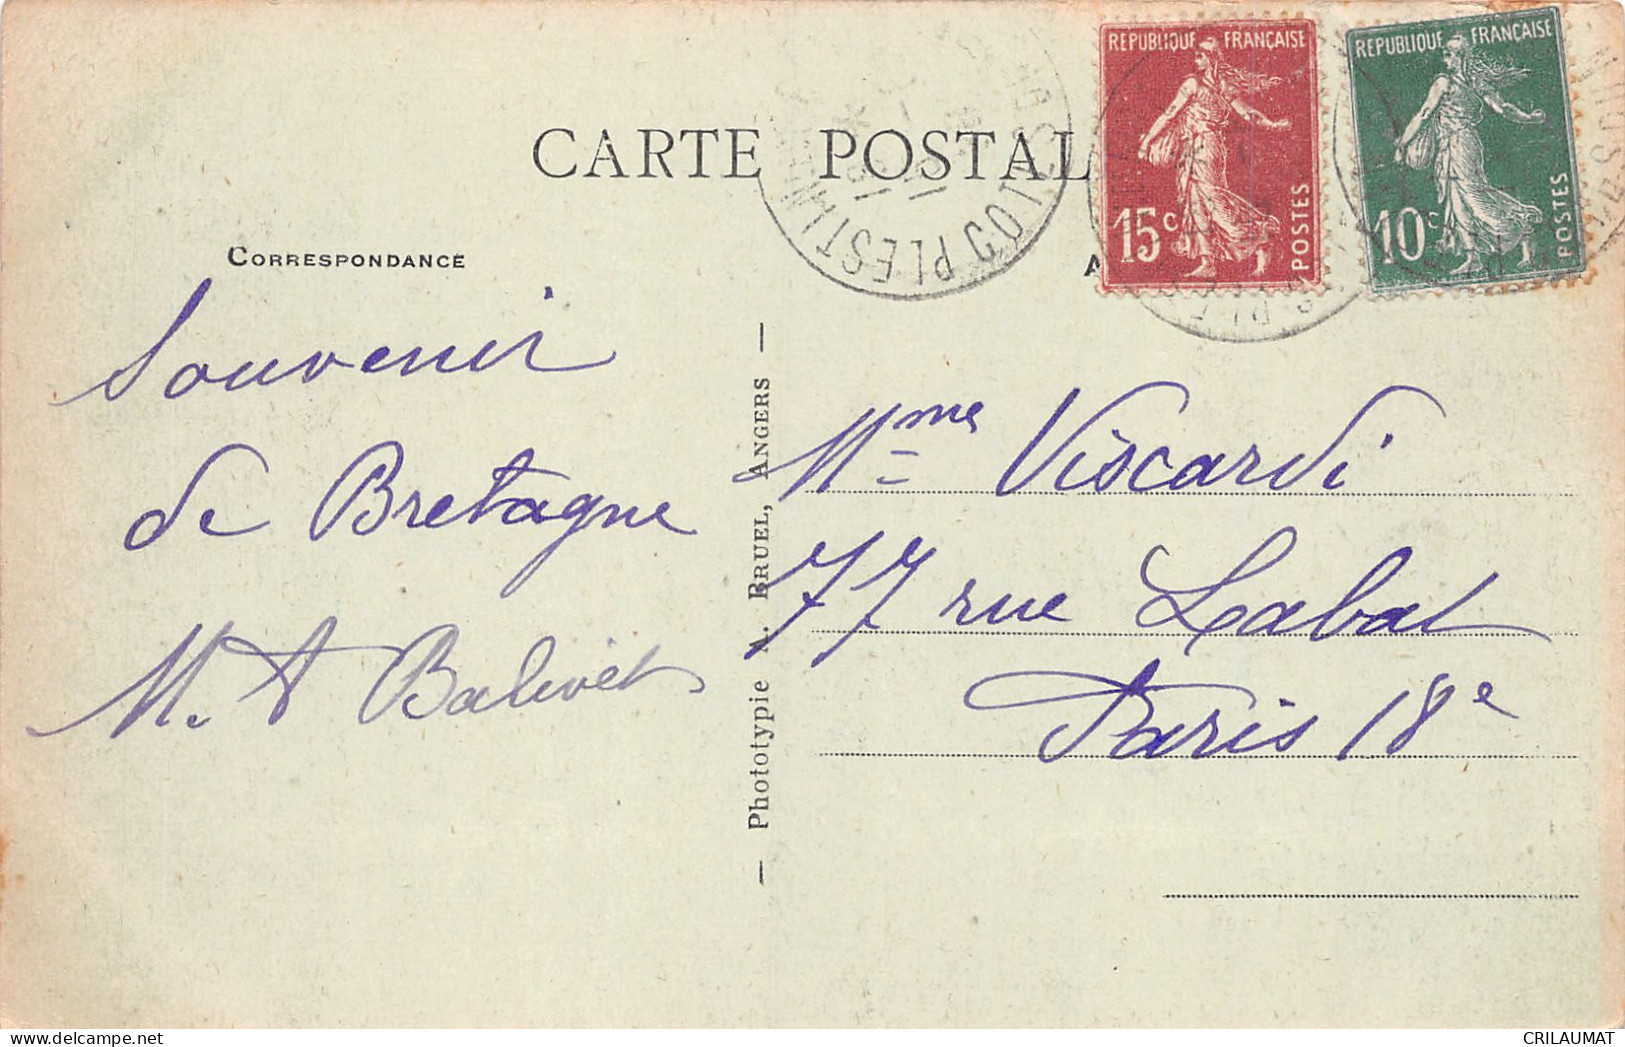 CARTE POSTAL
REPUBLIQUE FRANÇAISE
15c
POSTES
REPUBLIQUE FRANÇAISE
10c
POSTES
PLESTIN
CORRESPONDANCE
A
Souvenir
de Bretagne
M. A Balivet
— Phototypie A. BRUEL, ANGERS —
Mme Viscardi
77 rue Labat
Paris 18e
CRILAUMAT